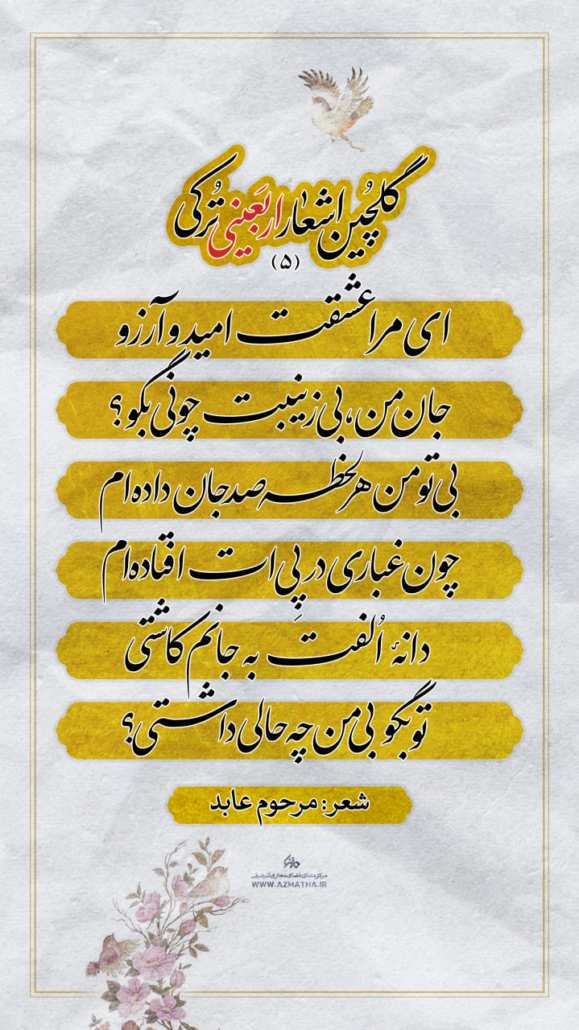 گلچین اشعار اربَعینی تُرکی
(۵)
ای مرا عشقت امید و آرزو
جان من، بی زینبت چونی بگو؟
بی تو من هر لحظه صد جان داده ام
چون غباری در پِی ات افتاده ام
دانهٔ اُلفت به جانم کاشتی
تو بگو بی من چه حالی داشتی؟
شعر: مرحوم عابد
WWW.AZMATNA.IR